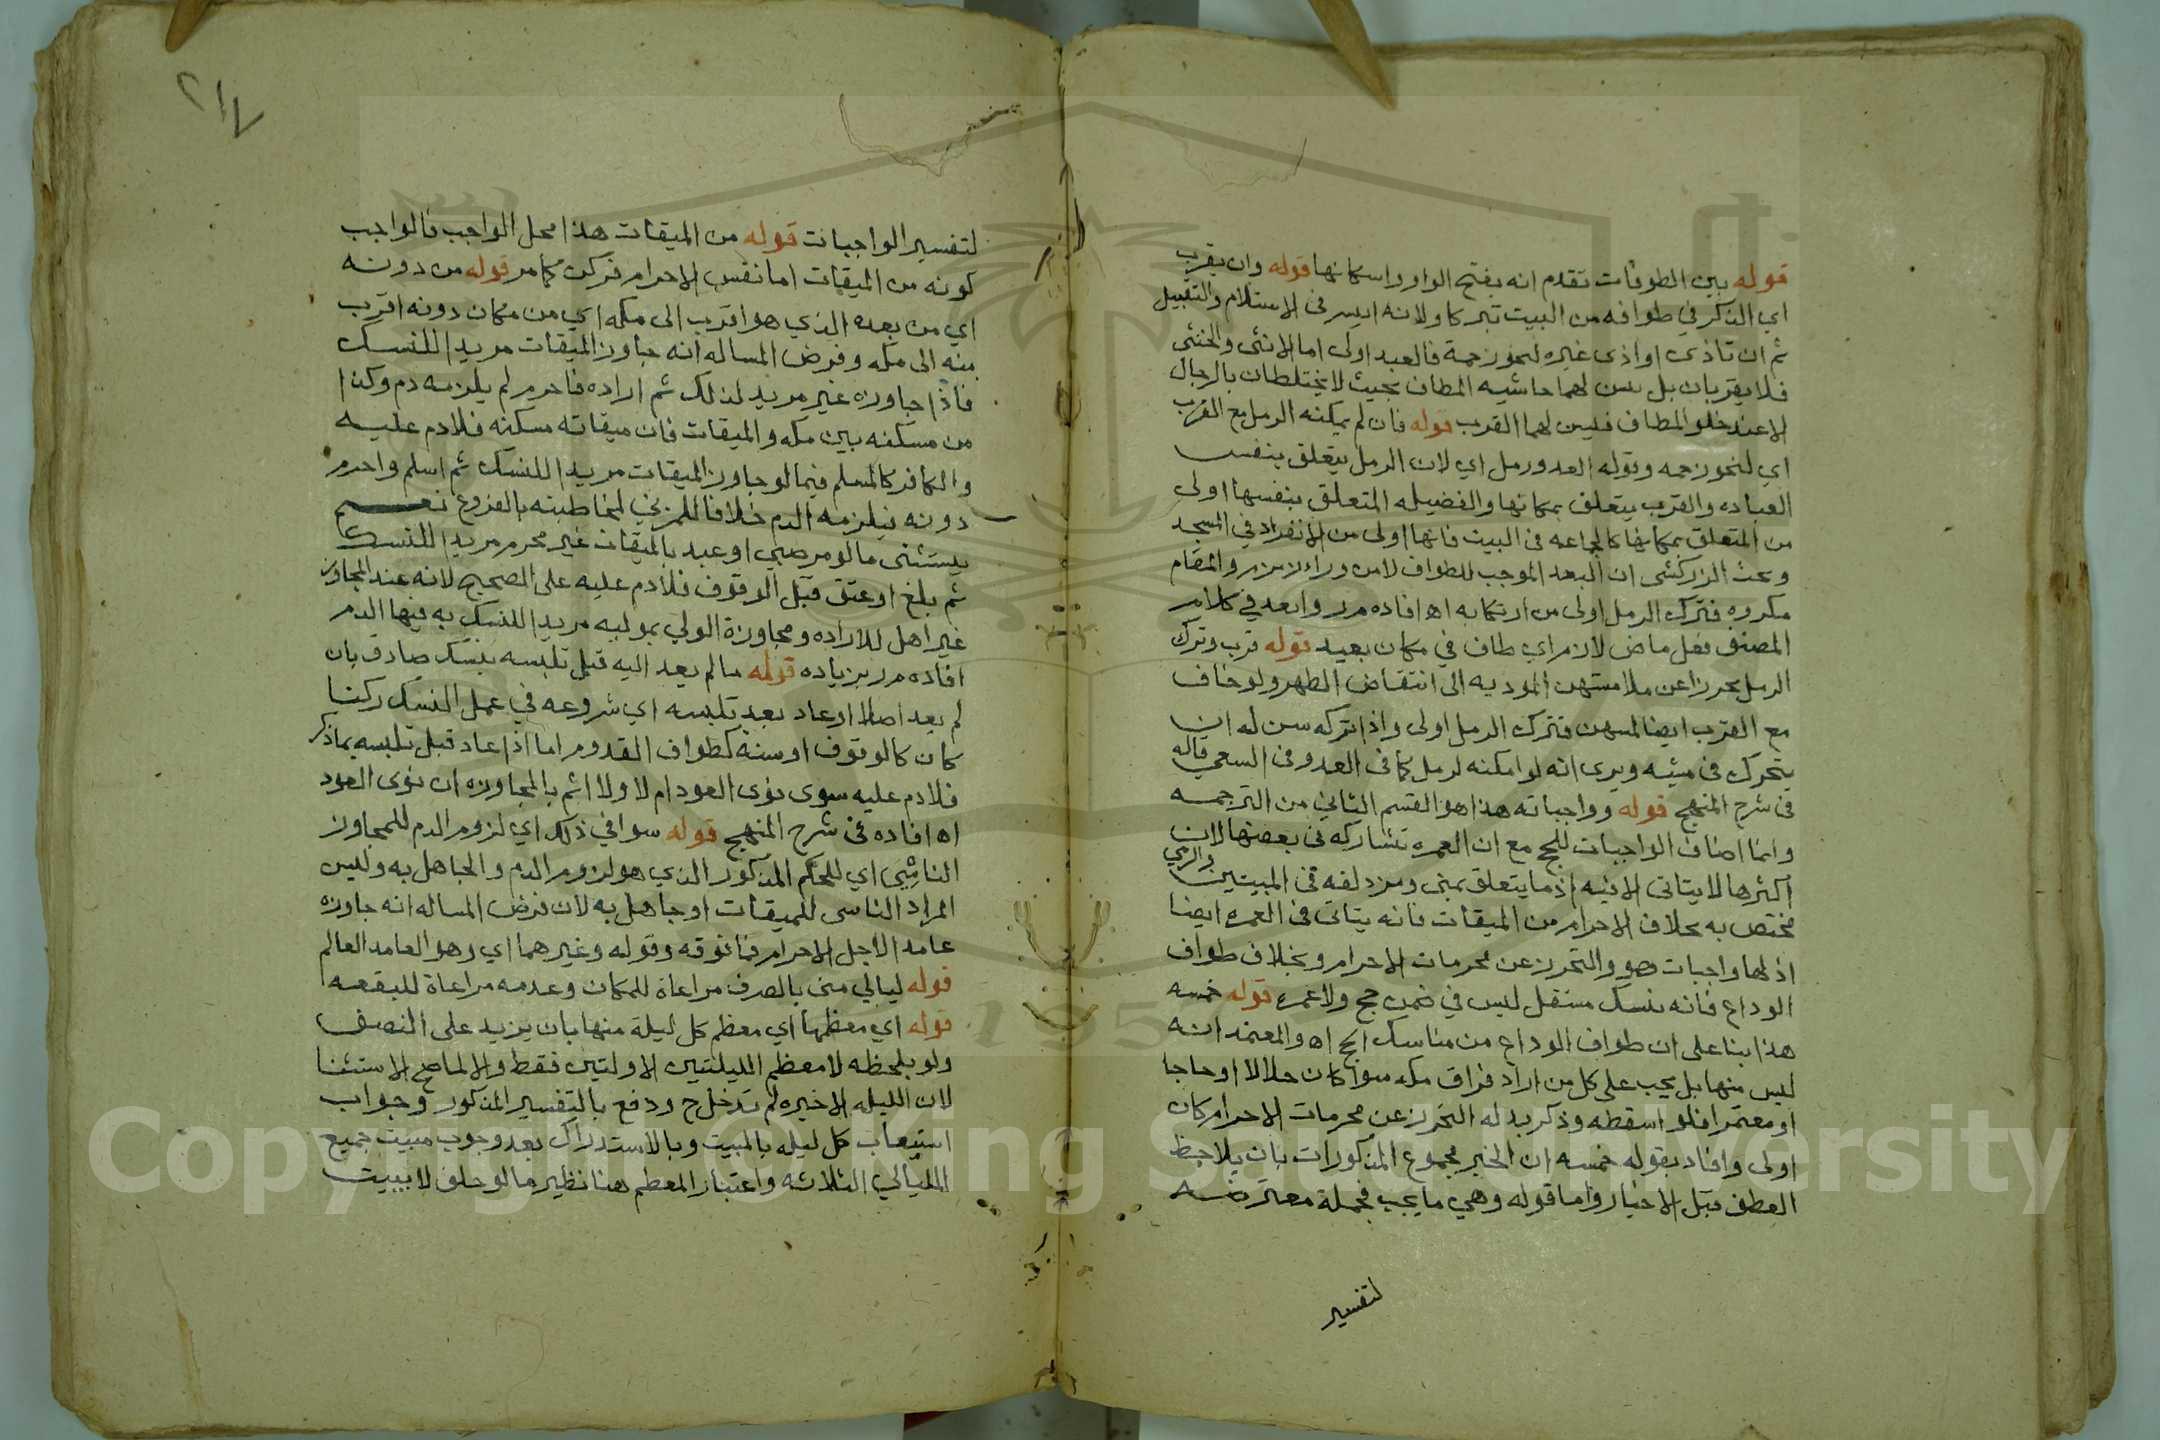 قوله بين الطوفات تقدم انه بفتح الواو واسكانها قوله وان يقرب
اي الذكر في طوافه من البيت تبركا ولانه ايسر في الاستلام والتقبيل
ثم ان تاذى او اذى غيره لنحو زحمة فالعبد اولى اما الانثى والخنثى
فلا يقربان بل يسن لهما حاشيه المطاف بحيث لا يختلطان بالرجال
الا عند خلو المطاف فيسن لهما القرب قوله فان لم يمكنه الرمل مع القرب
اي لنحو زحمه وقوله العدو رمل اي لان الرمل يتعلق بنفس
العباده والقرب يتعلق بمكانها والفضيله المتعلق بنفسها اولى
من المتعلق بمكانها كالجماعه في البيت فانها اولى من الانفراد في المسجد
وبحث الزركشى ان البعد الموجب للطواف لا من وراء زمزم والمقام
مكروه فترك الرمل اولى من ارتكابه اه افاده م ر وابعد في كلام
المصنف فعل ماض لازم اي طاف في مكان بعيد قوله قرب وترك
الرمل بحرزا عن ملامستهن الموديه الى انتقاض الطهر ولو خاف
مع القرب ايضا لمسهن فترك الرمل اولى واذا تركه سن له ان
يتحرك في مشيه ويرى انه لو امكنه لرمل كما في العدو في السعي قاله
في شرح المنهج قوله وواجباته هذا هو القسم الثاني من الترجمه
وانما اضاف الواجبات للحج مع ان العمره تشاركه في بعضها لان
اكثرها لا يتاتى الا فيه اذ ما يتعلق بمنى ومزدلفه في المبيتين والرمي
مختص به بخلاف الاحرام من الميقات فانه يتاتى في العمره ايضا
اذ لها واجبات هو والتحرز عن محرمات الاحرام وبخلاف طواف
الوداع فانه نسك مستقل ليس في ضمن حج ولا عمره قوله خمسه
هذا بناء على ان طواف الوداع من مناسك الحج اه والمعتمد انه
ليس منها بل يجب على كل من اراد فراق مكه سوا كان حلالا او حاجا
او معتمرا فلو اسقطه وذكر بدله التحرز عن محرمات الاحرام كان
اولى وافاد بقوله خمسه ان الخبر مجموع المذكورات بان يلاحظ
العطف قبل الاخبار واما قوله وهي ما يجب فجملة معترضه
لتفسير
٢١٧
لتفسير الواجبات قوله من الميقات هذا محل الواجب فالواجب
كونه من الميقات اما نفس الاحرام فركن كما مر قوله من دونه
اي من بعده الذي هو اقرب الى مكه اي من مكان دونه اقرب
منه الى مكه وفرض المساله انه جاوز الميقات مريدا للنسك
فاذا جاوزه غير مريد لذلك ثم اراده فاحرم لم يلزمه دم وكذا
من مسكنه بين مكه والميقات فان ميقاته مسكنه فلا دم عليه
والكافر كالمسلم فيما لو جاوز الميقات مريدا للنسك ثم اسلم واحرم
دونه فيلزمه الدم خلافا للمزني لمخاطبته بالفروع نعم
يستثنى ما لو مر صبي او عبد بالميقات غير محرم مريدا للنسك
ثم بلغ او عتق قبل الوقوف فلا دم عليه على الصحيح لانه عند المجاوزه
غير اهل للاراده ومجاوزة الولي بموليه مريدا للنسك به فيها الدم
افاده م ر بزياده قوله ما لم يعد اليه قبل تلبسه بنسك صادق بان
لم يعد اصلا او عاد بعد تلبسه اي شروعه في عمل النسك ركنا
كان كالوقوف او سنة كطواف القدوم اما اذا عاد قبل تلبسه بما ذكر
فلا دم عليه سوى نوى العود ام لا ولا اثم بالمجاوزه ان نوى العود
اه افاده في شرح المنهج قوله سوا في ذلك اي لزوم الدم للمجاوز
الناسي اي للحكم المذكور الذي هو لزوم الدم والجاهل به وليس
المراد الناسى للميقات او جاهل به لان فرض المساله انه جاوزه
عامدا لاجل الاحرام فما فوقه وقوله وغيرهما اي وهو العامد العالم
قوله ليالي منى بالصرف مراعاة للمكان وعدمه مراعاة للبقعه
قوله اي معظمها اي معظم كل ليلة منها بان يزيد على النصف
ولو بلحظه لا معظم الليلتين الاولتين فقط والا لما صح الاستثنا
لان الليله الاخيره لم تدخل ح ودفع بالتفسير المذكور وجواب
استيعاب كل ليله بالمبيت وبالاستدراك بعد وجوب مبيت جميع
الليالي الثلاثه واعتبار المعظم هنا نظير ما لو حلف لا يبيت
Copyright © King Saud University
1957